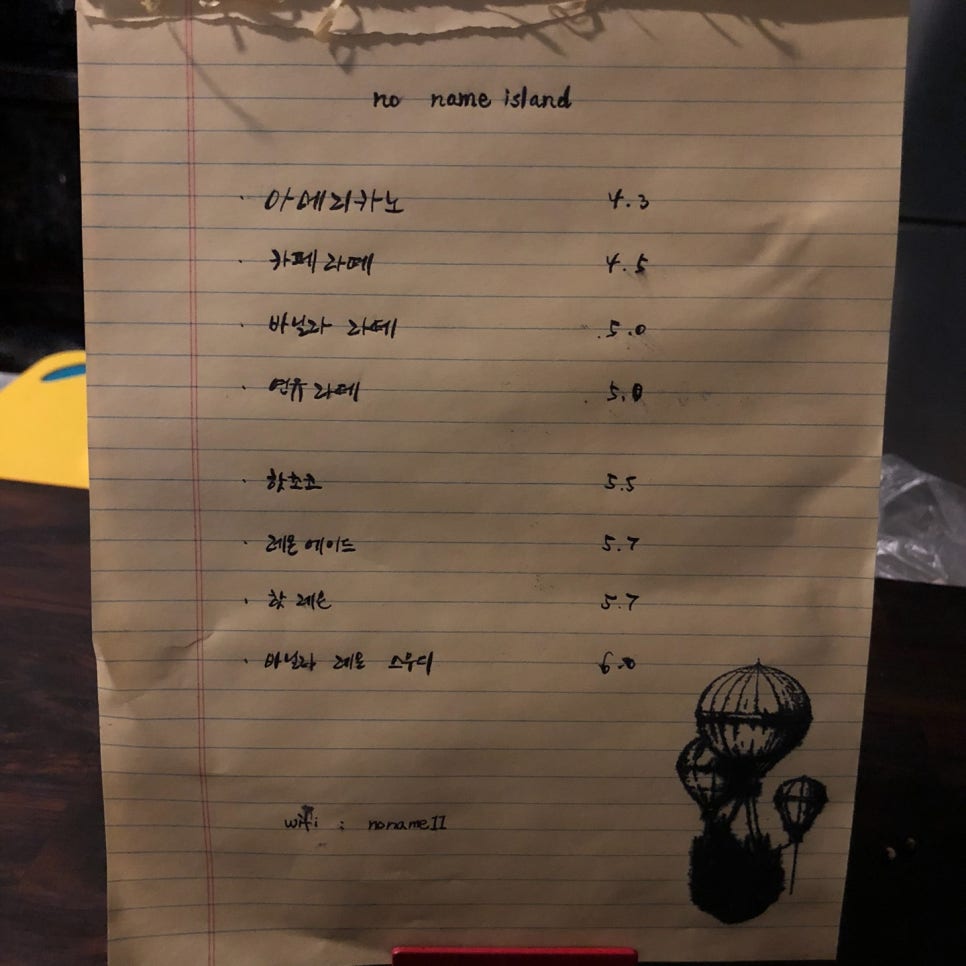 no name island
· 아메리카노 4.3
· 카페라떼 4.5
· 바닐라 라떼 5.0
· 연유라떼 5.0
· 핫초코 5.5
· 레몬에이드 5.7
· 핫 레몬 5.7
· 바닐라 레몬 스무디 6.0
wifi : noname11